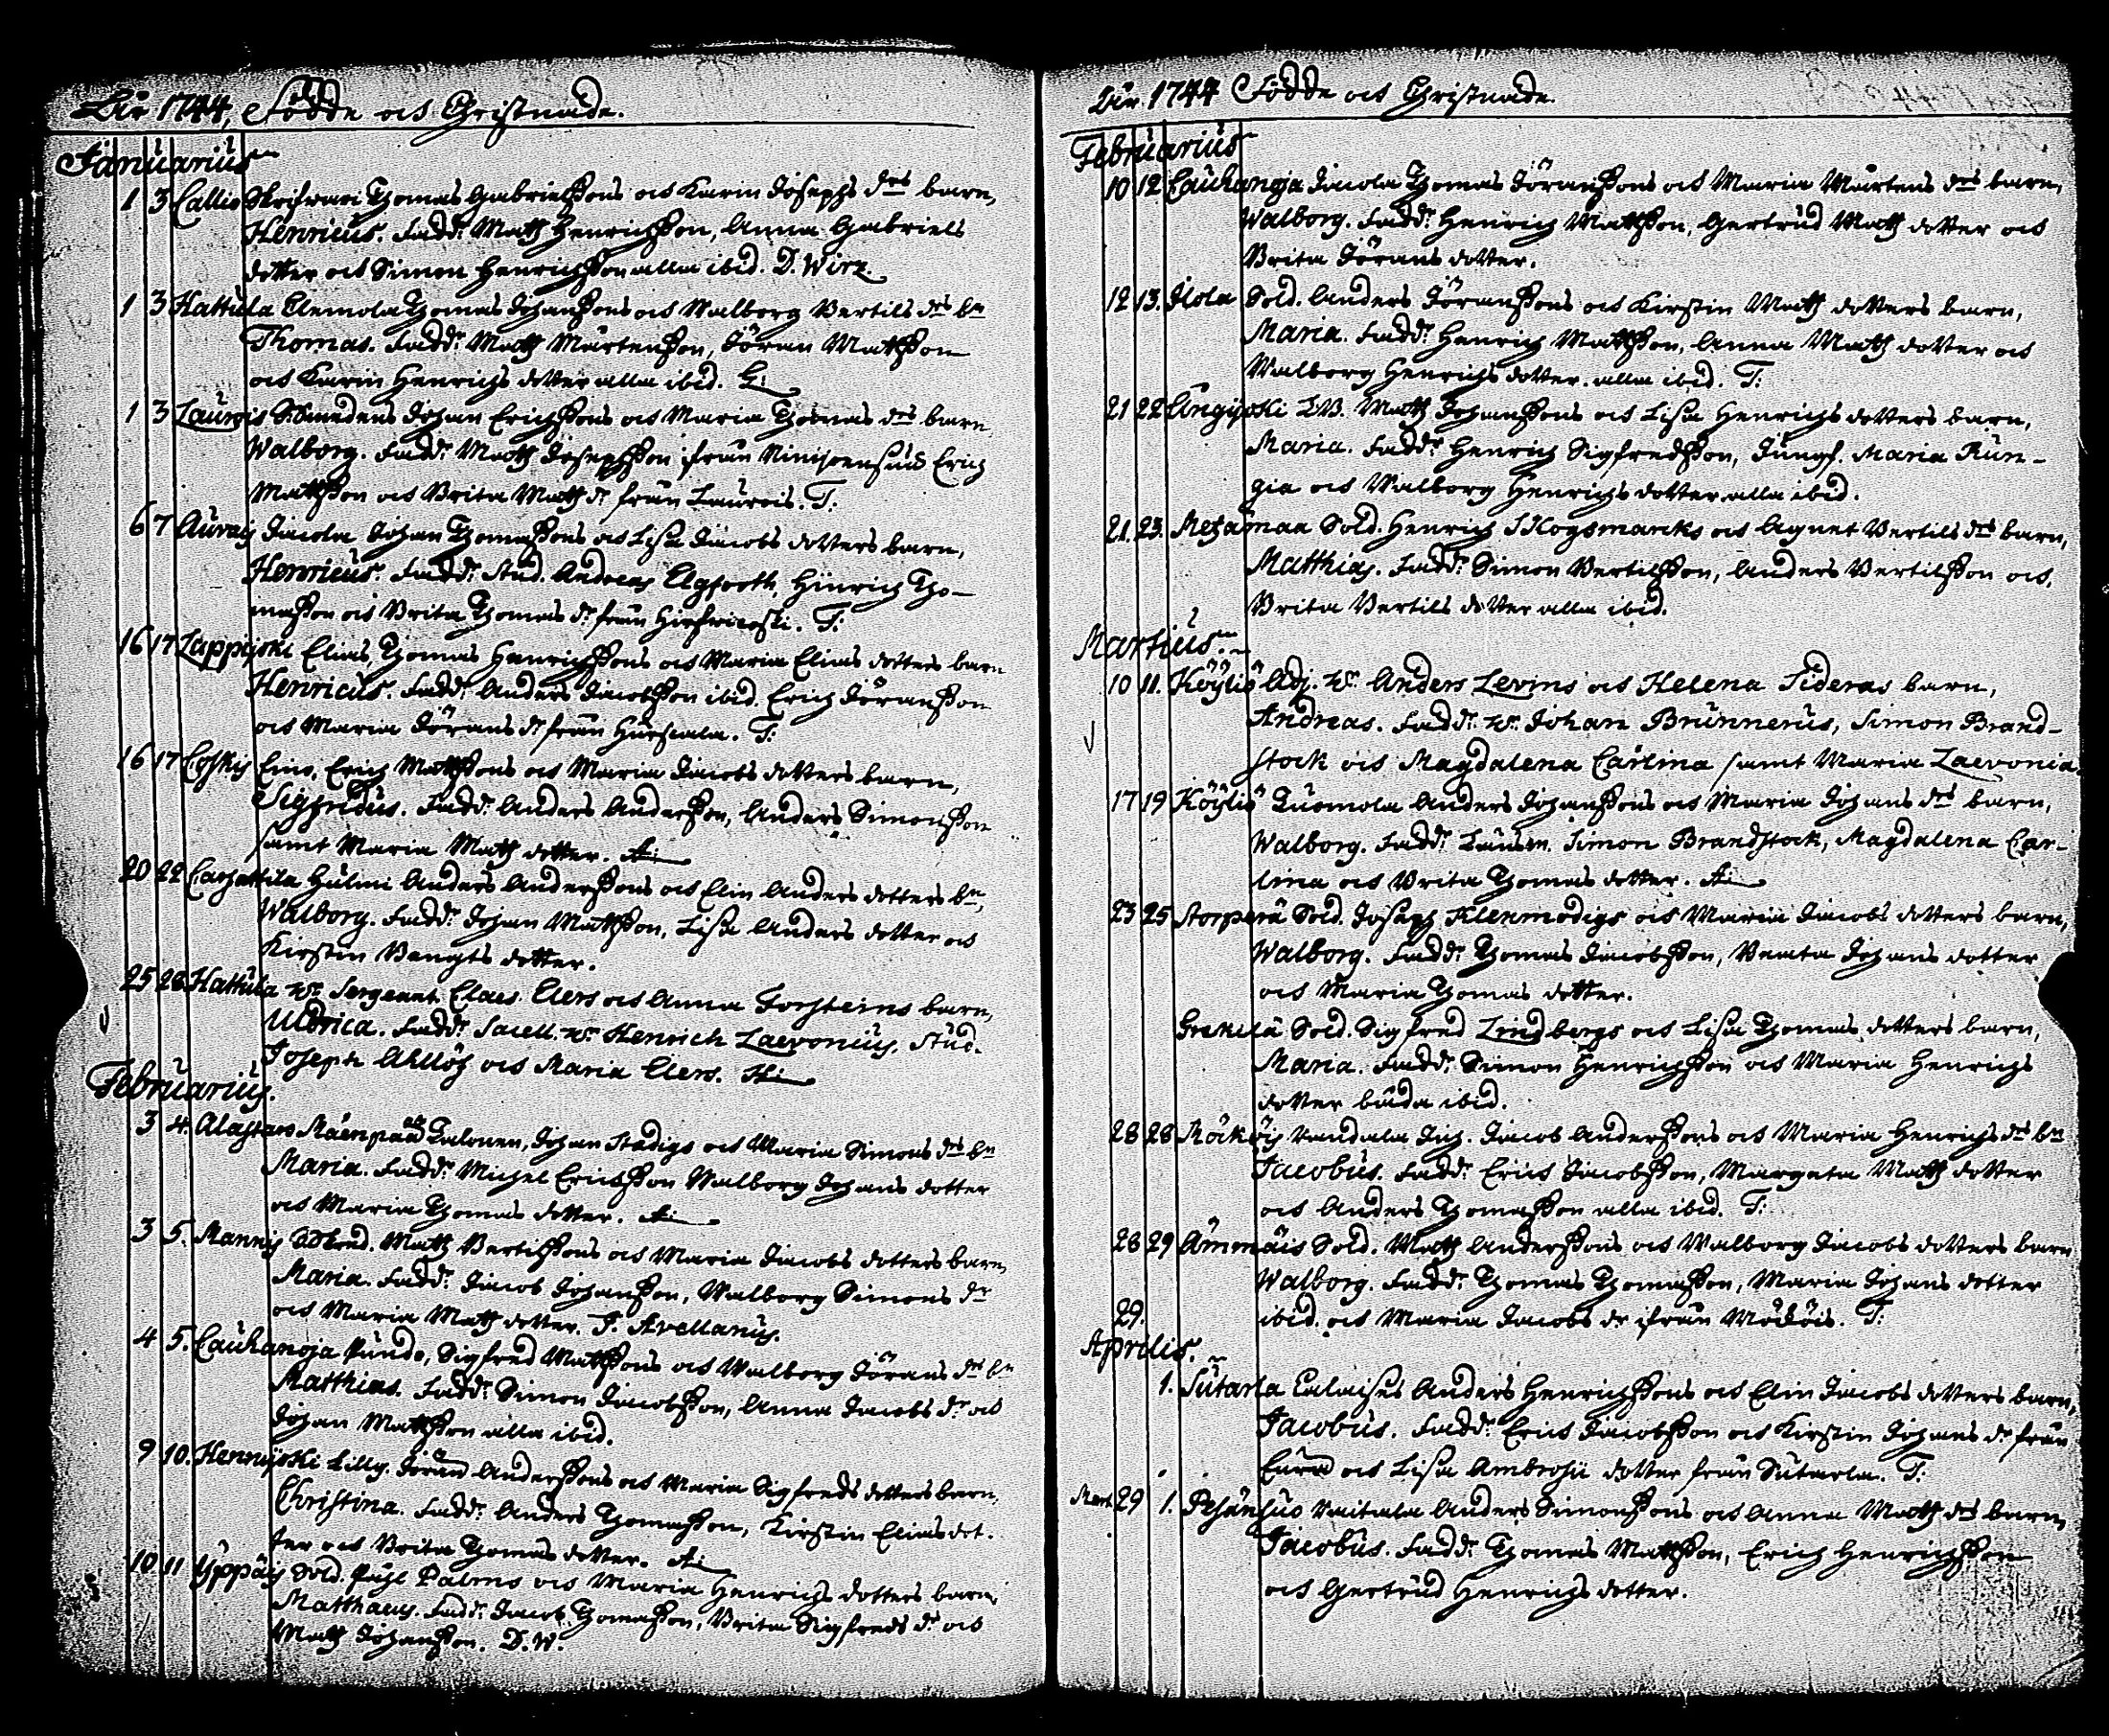 Åhr 1744, Födde och Christnade.
Januarius
1 3 Callio Skrifwari Thomas Gabrielssons och Karin Josephs drs barn,
Henricus. Fadd: Matth Henrichsson, Anna Gabriels
dotter och Simon Henrichsson alla ibid. D. Wirz.
1 3 Hattula Clemola Thomas Johanssons och Walborg Bertils drs bn
Thomas. Fadd: Matth Mårtensson, Jöran Mattsson
och Karin Henrichs dotter alla ibid.
1 3 Laurois Johan Erichssons och Maria Thomas drs barn
Walborg. Fadd: Matth Josephsson från Erich
Mattsson och Brita Matth dr från Laurois. T:
6 7 Auvais Jacola Johan Thomassons och Lisa Jacobs dotters barn,
Henricus. Fadd: Stud. Andreas Elgfooth, Hinrich Tho-
masson och Brita Thomas dr från T:
16 17 Lappijoki Elias, Thomas Henrichssons och Maria Elias dotters barn
Henricus. Fadd: Anders Jacobsson ibid. Erich Jöransson
och Maria Jörans dr från T:
16 17 Coskis Eino, Erich Mattssons och Maria Jacobs dotters barn,
Sigfridus. Fadd: Anders Andersson, Anders Simonsson
samt Maria Matth dotter. A:
20 22 Carhattila Hulmi Anders Anderssons och Elin Anders dotters bn,
Walborg. Fadd: Johan Mattsson, Lisa Anders dotter och
Kirstin Bengts dotter.
25 28 Hattula Hr. Sergeant Claes Elers och Anna Torsteins barn,
Uldrica. Fadd: Sacell. Hr Henrich Laevonius, Stud.
Joseph Ahllöf och Maria Elers. H:
Februarius.
3 4. Alastaro Mäenpää Talonen, Johan Stadigs och Maria Simons drs bn
Maria. Fadd: Michel Erichsson Walborg Johans dotter
och Maria Thomas dotter. A:
3 5. Mannis Matth Bertilssons och Maria Jacobs dotters barn,
Maria. Fadd: Jacob Johansson, Walborg Simons dr
och Maria Matth dotter. J. Avellanus.
4 5. Cauhanoja Pundo, Sigfred Mattssons och Walborg Jörans drs bn
Matthias. Fadd: Simon Jacobsson, Anna Jacobs dr och
Johan Mattsson alla ibid.
9 10. Hennijoki Lilly. Jöran Anderssons och Maria Sigfreds dotters barn,
Christina. Fadd: Anders Thomasson, Kirstin Elias dot-
ter och Brita Thomas dotter. A:
10 11 Yppäis Sold. Påhl Palms och Maria Henrichs dotters barn,
Matthaeus. Fadd: Jacob Thomasson, Brita Sigfreds dr och
Matth Johansson. D.W.
Åhr 1744 Födde och Christnade.
Februarius
10 12 Cauhanoja Jacola Thomas Jöranssons och Maria Mårtens drs barn,
Walborg. Fadd: Henrich Mattsson, Gertrud Matth dotter och
Brita Jörans dotter.
12 13. Ilola Sold. Anders Jöranssons och Kirstin Matth dotters barn,
Maria. Fadd: Henrich Mattsson, Anna Matth dotter och
Walborg Henrichs dotter. alla ibid. T:
21 22 Matth Johanssons och Lisa Henrichs dotters barn,
Maria. Fadd: Henrich Sigfredsson, Jungf. Maria Run-
gia och Walborg Henrichs dotter alla ibid.
21. 23. Metzämaa Sold. Henrich Skogsmarcks och Agnet Bertils drs barn,
Matthias. Fadd: Simon Bertilsson, Anders Bertilsson och
Brita Bertils dotter alla ibid.
Martius.
10 11. Köyliö Adj. Hr. Anders Levins och Helena Sideras barn,
Andreas. Fadd: Hr. Johan Brunnerus, Simon Brand-
stock och Magdalena Carlina samt Maria Laevonia.
17 19 Köyliö Tuomola Anders Johanssons och Maria Johans drs barn,
Walborg. Fadd: Simon Brandstock, Magdalena Car-
lina och Brita Thomas dotter. A:
23 25 Storperä Sold. Joseph Klenmodigs och Maria Jacobs dotters barn,
Walborg. Fadd: Thomas Jacobsson, Beata Johans dotter
och Maria Thomas dotter.
Grekilä Sold. Sigfred Lindbergs och Lisa Thomas dotters barn,
Maria. Fadd: Simon Henrichsson och Maria Henrichs
dotter båda ibid.
28 28 Mökköis Vandala Jacob Anderssons och Maria Henrichs drs bn
Jacobus. Fadd: Erich Jacobsson, Margeta Matth dotter
och Anders Thomasson alla ibid. T:
28 29 Ammäis Sold. Matth Anderssons och Walborg Jacobs dotters barn
Walborg. Fadd: Thomas Thomasson, Maria Johans dotter
29. ibid. och Maria Jacobs dr ifrån Möcköis. T:
Aprilis.
1. Sutarla Anders Henrichssons och Elin Jacobs dotters barn,
Jacobus. Fadd: Erich Jacobsson och Kirstin Johans dr från
och Lisa Ambrosii dotter från Sutarla. T:
Mart. 29 1. Pesänsuo Anders Simonssons och Anna Matth drs barn,
Jacobus. Fadd: Thomas Mattsson, Erich Henrichsson
och Gertrud Henrichs dotter.